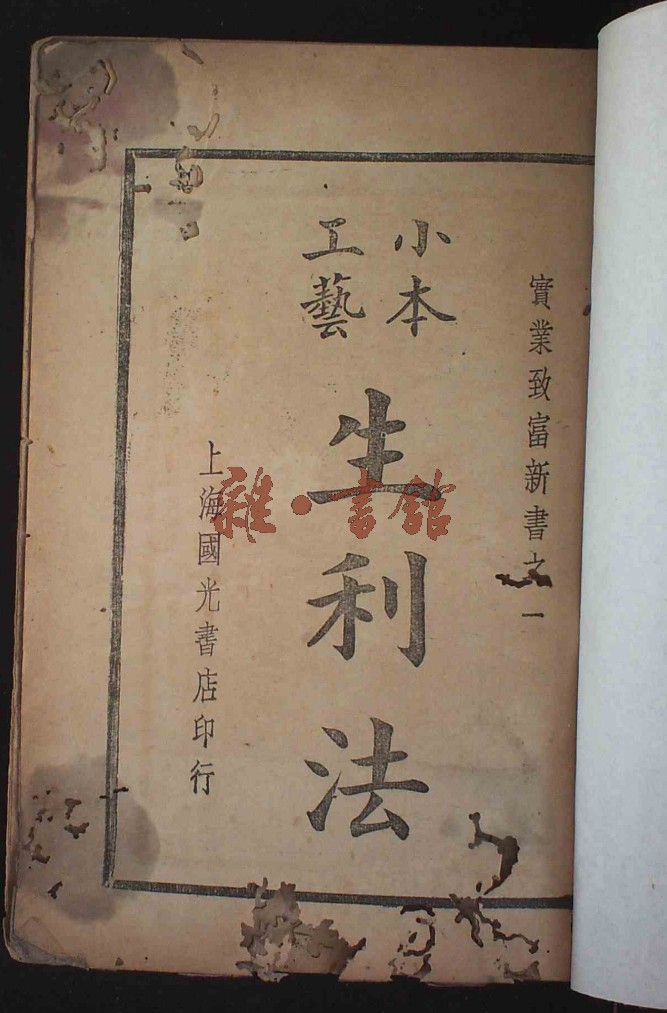 實業致富新書之一
小本
工藝
生利法
上海國光書店印行
雜·書館